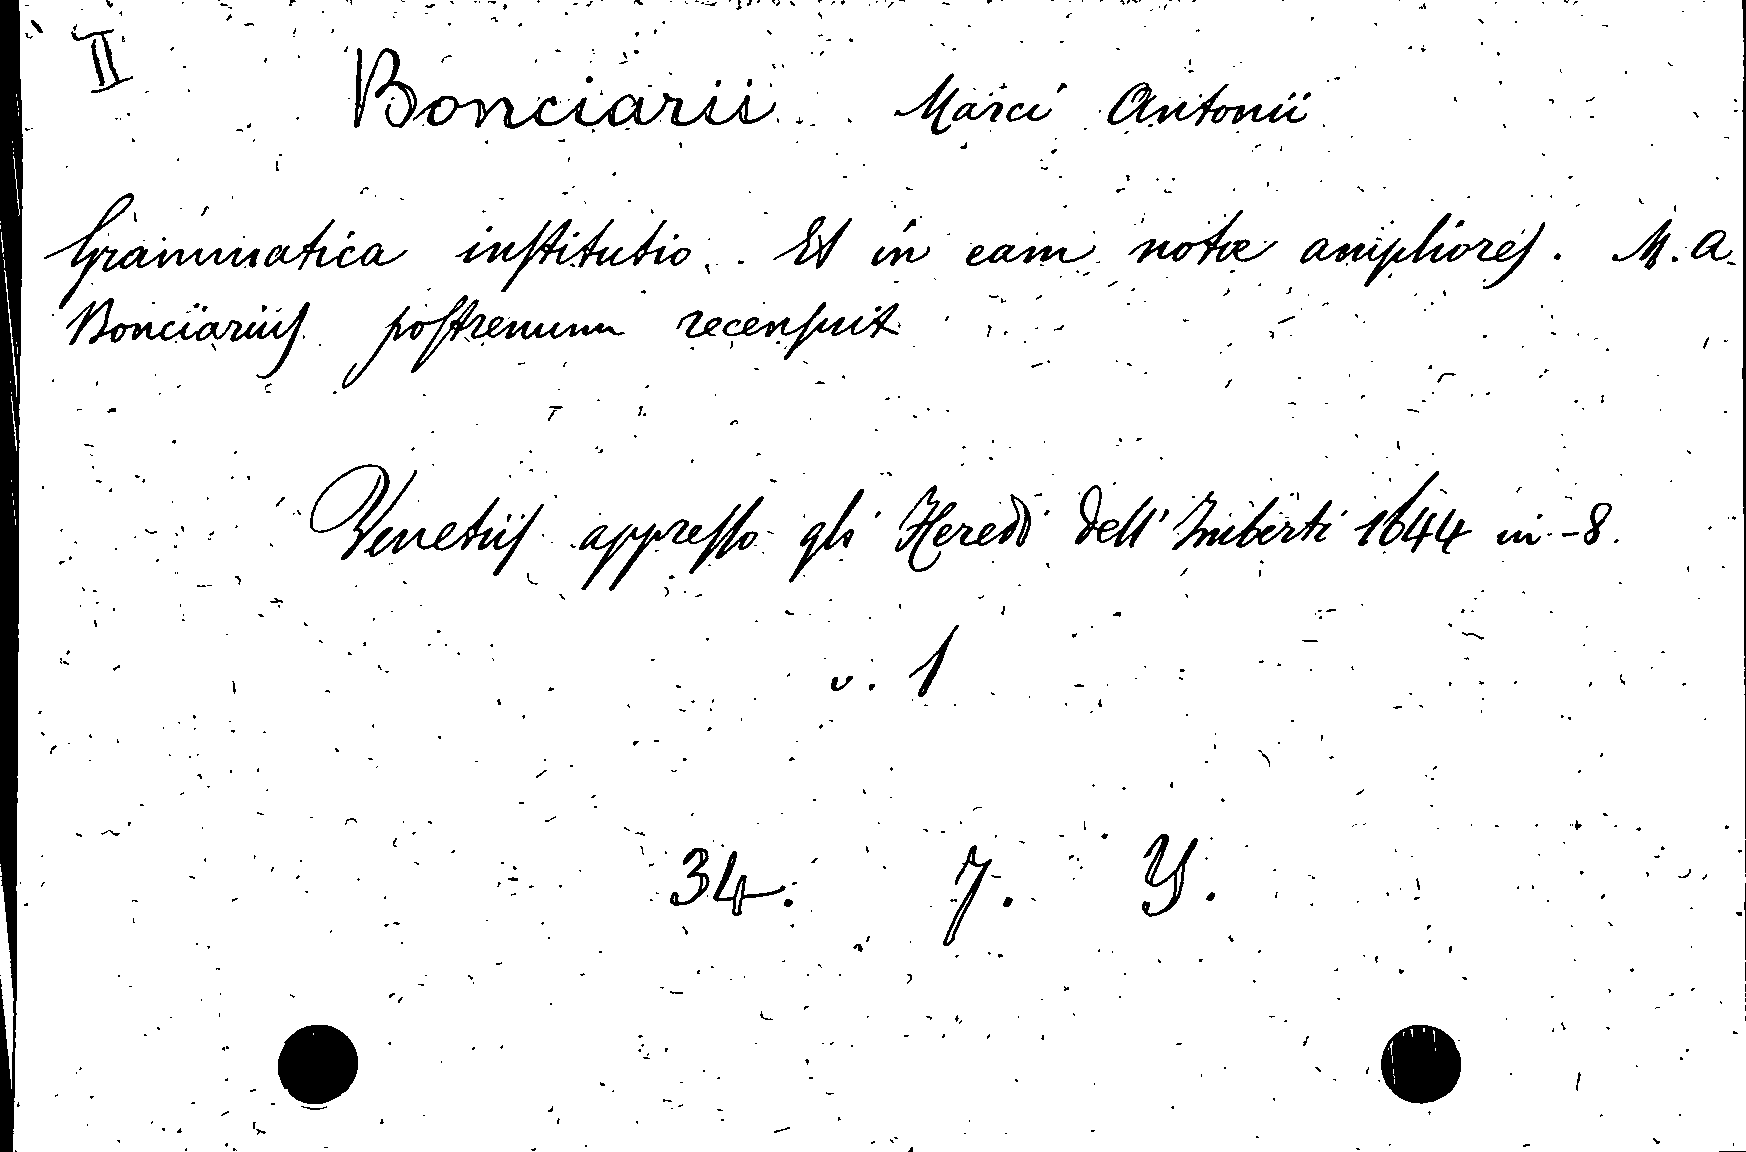 II
Bonciarii Marci Antonii
Grammatica inſtitutio. Et in eam notæ ampliores. M. A.
Bonciarius poſtremum recenſuit
Venetiis appreſſo gli Heredi dell' Imberti 1644 in-8.
v. 1
34. 7. Y.